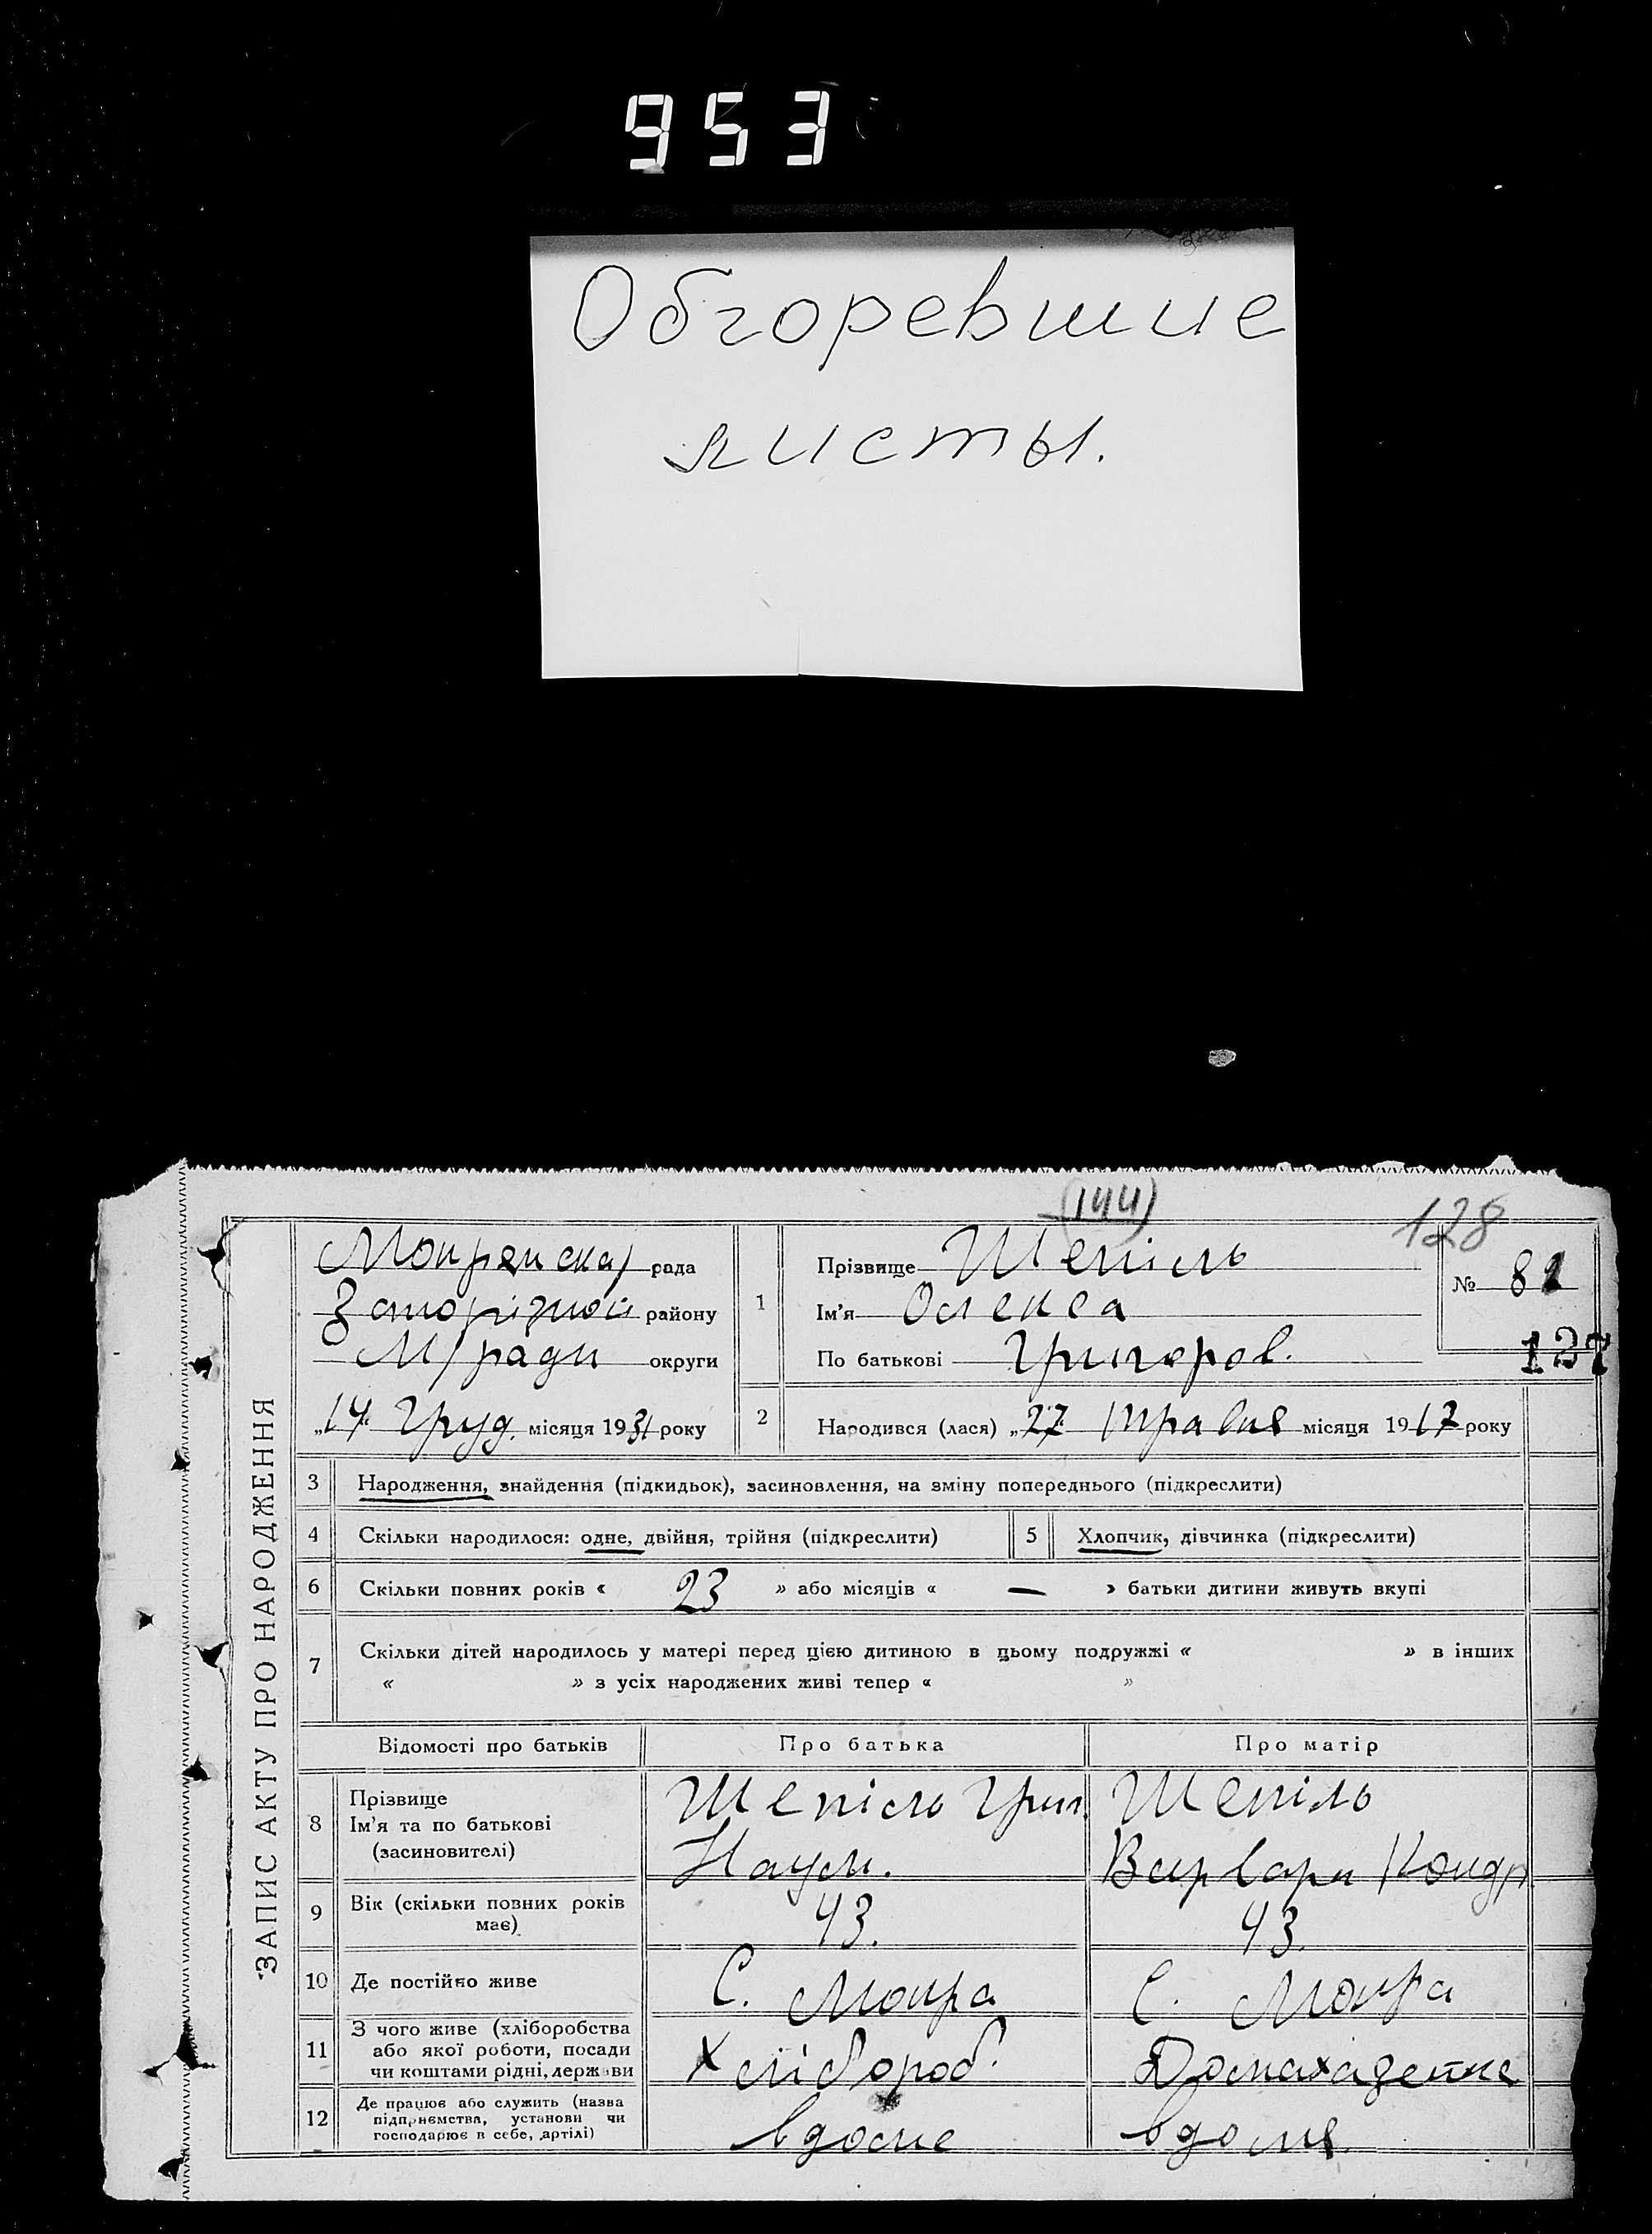 953
Обгоревшие
листы.
(144)
128
ЗАПИС АКТУ ПРО НАРОДЖЕННЯ
рада
Запорізької району
М/ради округи
„14“ Груд. місяця 1931 року
1
Прізвище Шепіль
Ім’я Олекса
По батькові Григоров.
№ 81
127
2 Народився (лася) „27“ Травня місяця 1917 року
3 Народження, знайдення (підкидьок), засиновлення, на зміну попереднього (підкреслити)
4 Скільки народилося: одне, двійня, трійня (підкреслити) 5 Хлопчик, дівчинка (підкреслити)
6 Скільки повних років « 23 » або місяців « — » батьки дитини живуть вкупі
7 Скільки дітей народилось у матері перед цією дитиною в цьому подружжі « » в інших
« » з усіх народжених живі тепер « »
Відомості про батьків Про батька Про матір
8 Прізвище
Ім’я та по батькові
(засиновителі)
Шепіль Григ.
Наум.
Шепіль
Варвара Кондр
9 Вік (скільки повних років
має)
43.
43.
10 Де постійно живе
С. Мокра
С. Мокра
11 З чого живе (хліборобства
або якої роботи, посади
чи коштами рідні, держави
Хлібороб.
12 Де працює або служить (назва
підприємства, установи чи
господарює в себе, артілі)
вдома
вдома